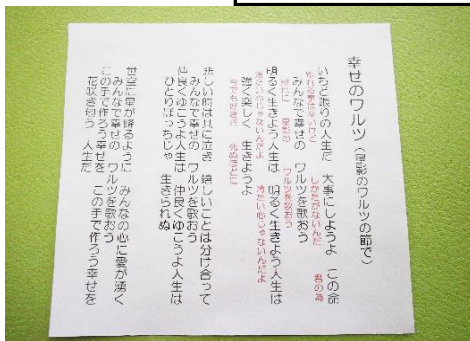 幸せのワルツ（星影のワルツの節で）
いちど限りの人生だ　大事にしようよ　この命
別れる事は辛いけど　しかたがないんだ　君の為
みんなで幸せの　ワルツを歌おう
別れに　星影の　ワルツを歌おう
明るく生きよう人生は　明るく生きよう人生は
冷たい心じゃないんだよ　冷たい心じゃないんだよ
強く楽しく　生きようよ
今でも好きだ　死ぬほどに
悲しい時は共に泣き　嬉しいことは分け合って
みんなで幸せの　ワルツを歌おう
仲良くゆこうよ人生は　仲良くゆこうよ人生は
ひとりぼっちじゃ　生きられぬ
夜空に星が降るように　みんなの心に愛が湧く
みんなで幸せの　ワルツを歌おう
この手で作ろう幸せを　この手で作ろう幸せを
花咲き匂う　人生だ